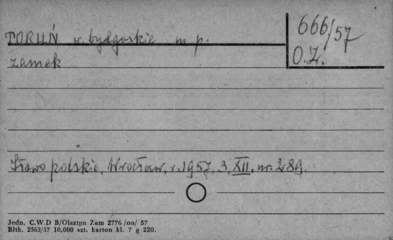 TORUŃ w. bydgoskie m. p.
666/57
O.Z.
zamek
Słowo polskie, Wrocław, r. 1957, 3. XII. nr. 289.
Jedn. C.W.D B/Olsztyn Zam 2776/on/ 57
Bltk. 2563/57 10,000 szt. karton kl. 7 g 220.